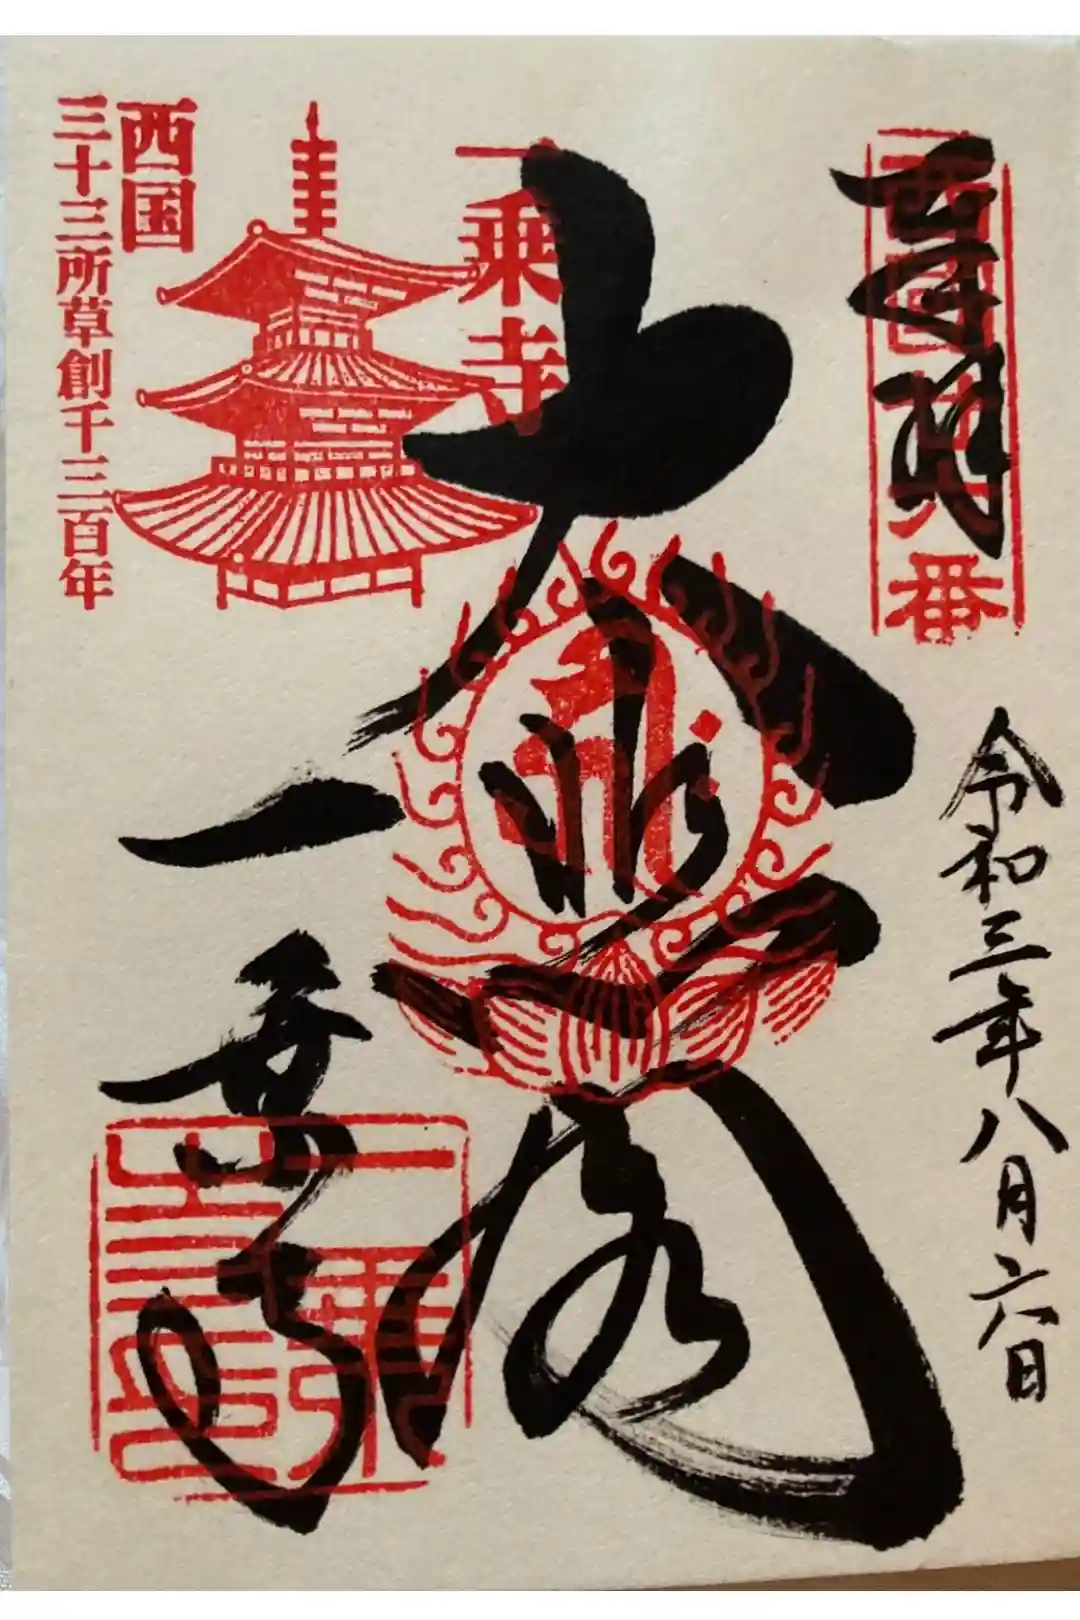 奉拝
西国廿六番
令和三年八月六日
大悲閣
一乗寺
一乗寺
西国
三十三所草創千三百年
一乗寺